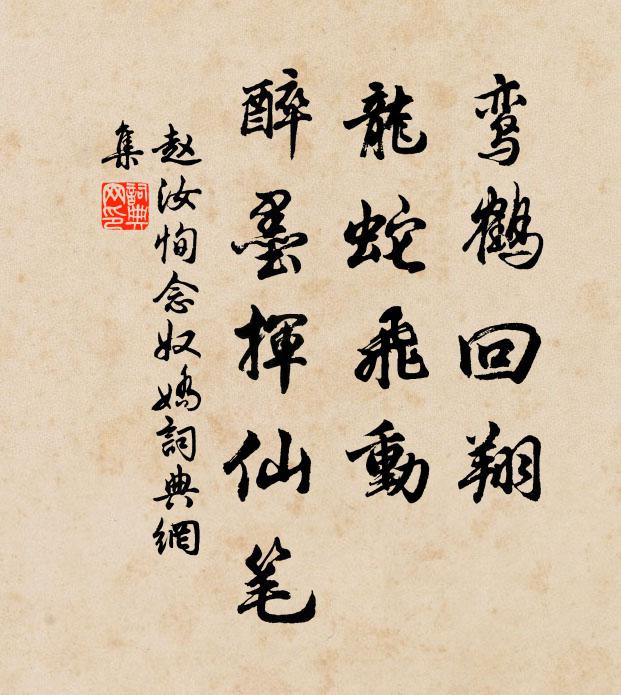 鸾鹤回翔
龍蛇飛動
醉墨揮仙笔
赵汝恂念奴嬌詞典網
集
詞典
网印